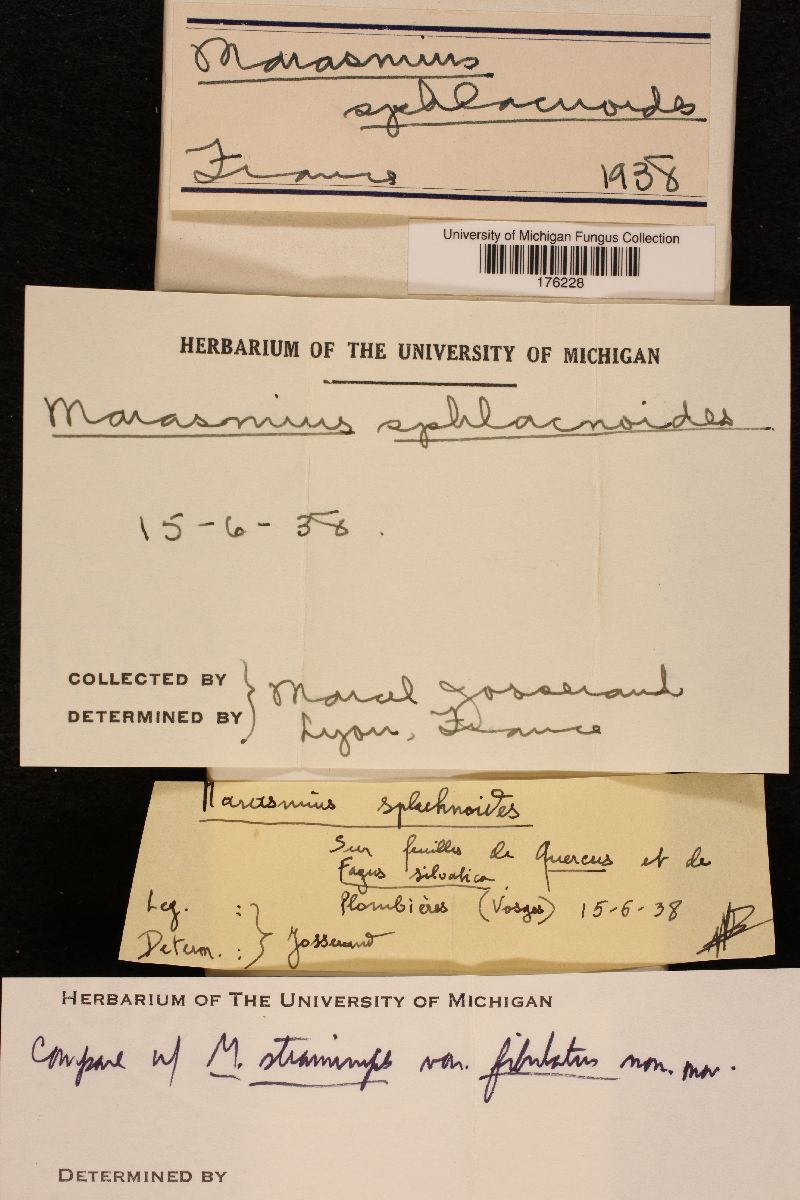 Marasmius
sphlacnoides
France 1938
University of Michigan Fungus Collection
176228
HERBARIUM OF THE UNIVERSITY OF MICHIGAN
Marasmius sphlacnoides
15-6-38.
COLLECTED BY } Marcel Josserand
DETERMINED BY } Lyon, France
Marasmius splachnoides
Sur feuilles de Quercus et de
Fagus silvatica.
Leg. : } Plombières (Vosges) 15-6-38
Determ. : } Josserand
HERBARIUM OF THE UNIVERSITY OF MICHIGAN
Compare w/ M. straminipes var. fibulatus nom. nov.
DETERMINED BY